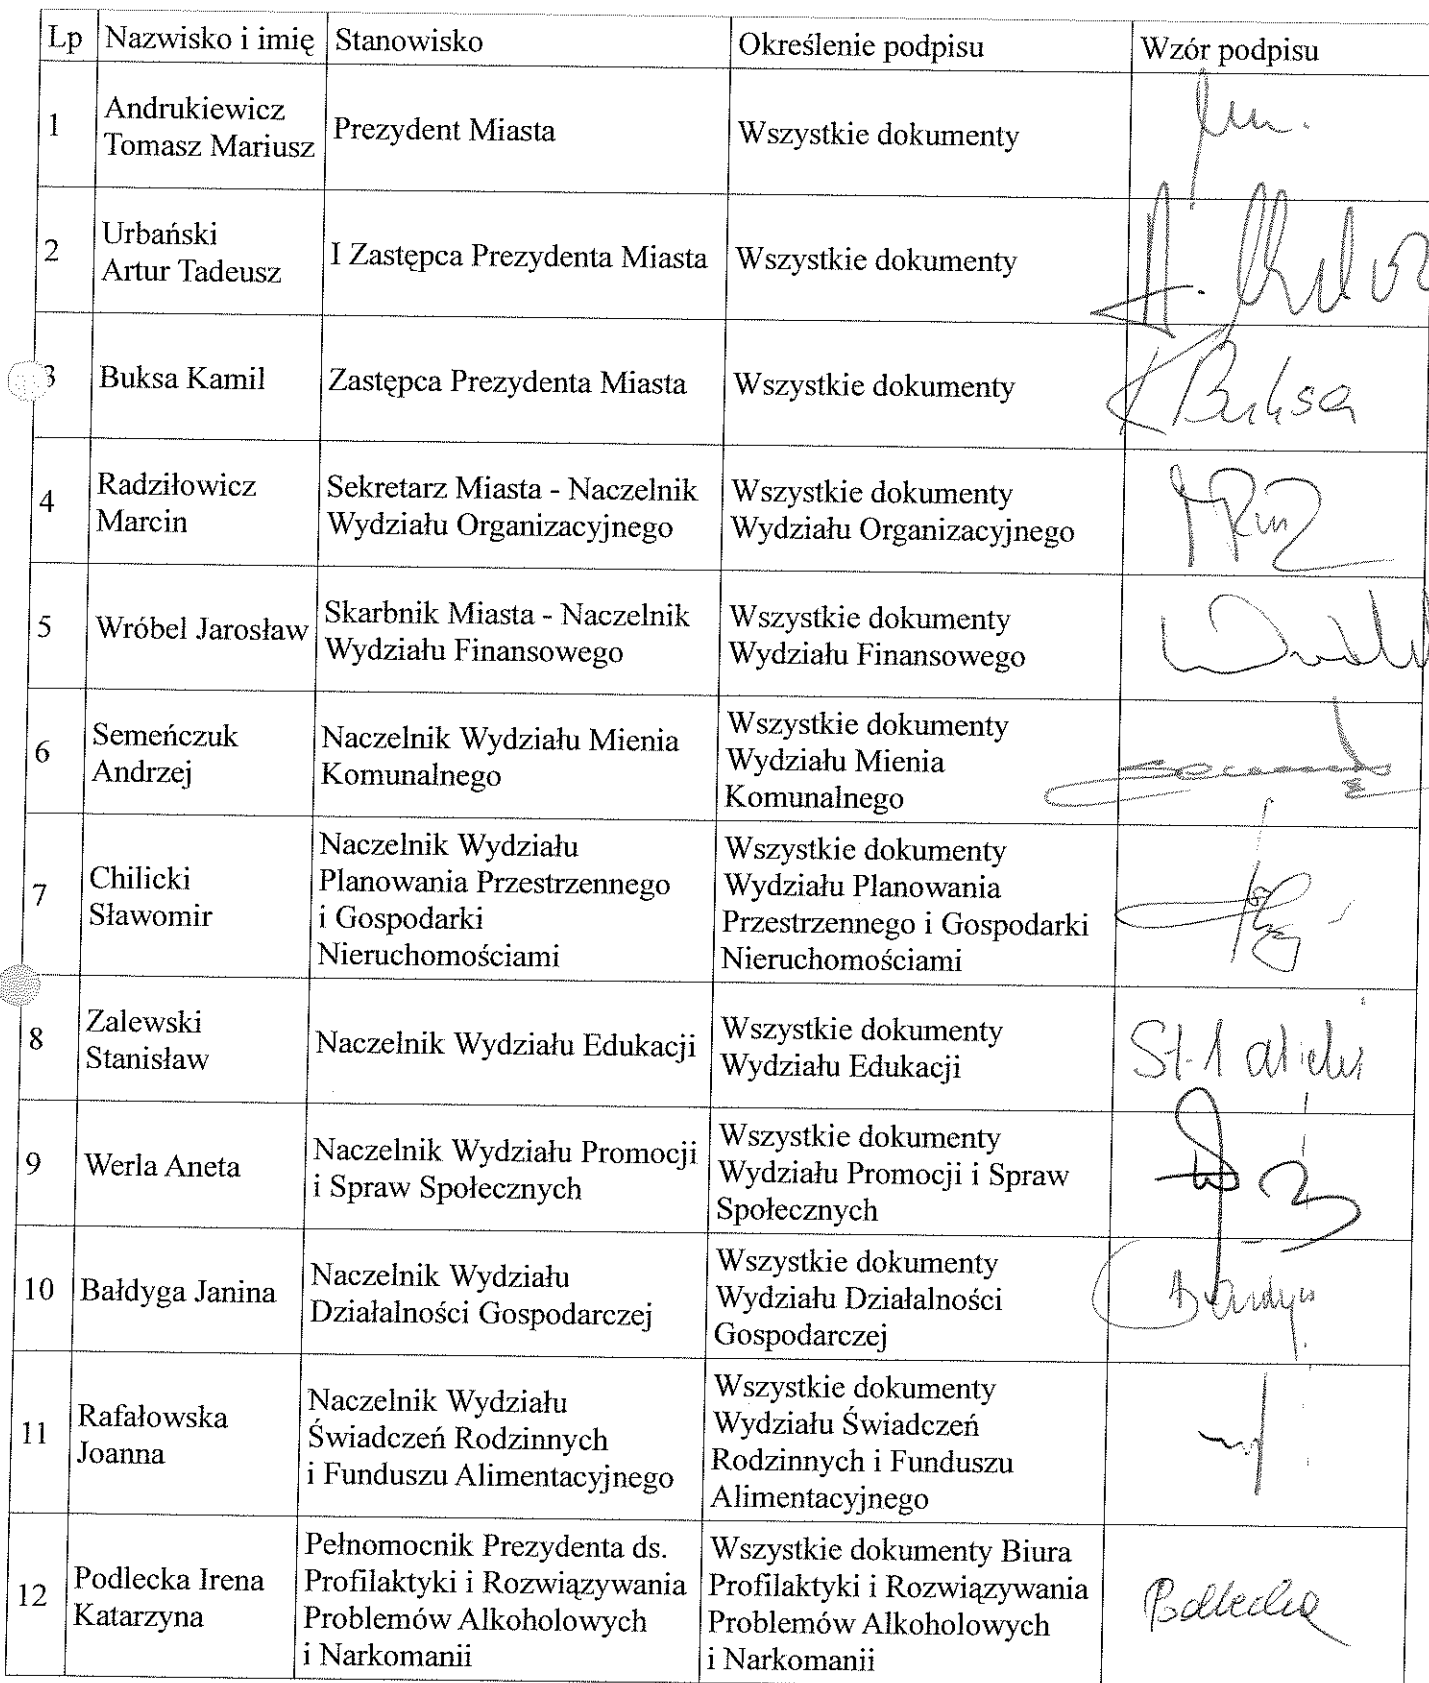 Lp Nazwisko i imię Stanowisko Określenie podpisu Wzór podpisu
1 Andrukiewicz
Tomasz Mariusz
Prezydent Miasta
Wszystkie dokumenty
2 Urbański
Artur Tadeusz
I Zastępca Prezydenta Miasta
Wszystkie dokumenty
3 Buksa Kamil
Zastępca Prezydenta Miasta
Wszystkie dokumenty
K Buksa
4 Radziłowicz
Marcin
Sekretarz Miasta - Naczelnik
Wydziału Organizacyjnego
Wszystkie dokumenty
Wydziału Organizacyjnego
5 Wróbel Jarosław
Skarbnik Miasta - Naczelnik
Wydziału Finansowego
Wszystkie dokumenty
Wydziału Finansowego
6 Semeńczuk
Andrzej
Naczelnik Wydziału Mienia
Komunalnego
Wszystkie dokumenty
Wydziału Mienia
Komunalnego
7 Chilicki
Sławomir
Naczelnik Wydziału
Planowania Przestrzennego
i Gospodarki
Nieruchomościami
Wszystkie dokumenty
Wydziału Planowania
Przestrzennego i Gospodarki
Nieruchomościami
8 Zalewski
Stanisław
Naczelnik Wydziału Edukacji
Wszystkie dokumenty
Wydziału Edukacji
9 Werla Aneta
Naczelnik Wydziału Promocji
i Spraw Społecznych
Wszystkie dokumenty
Wydziału Promocji i Spraw
Społecznych
10 Bałdyga Janina
Naczelnik Wydziału
Działalności Gospodarczej
Wszystkie dokumenty
Wydziału Działalności
Gospodarczej
11 Rafałowska
Joanna
Naczelnik Wydziału
Świadczeń Rodzinnych
i Funduszu Alimentacyjnego
Wszystkie dokumenty
Wydziału Świadczeń
Rodzinnych i Funduszu
Alimentacyjnego
12 Podlecka Irena
Katarzyna
Pełnomocnik Prezydenta ds.
Profilaktyki i Rozwiązywania
Problemów Alkoholowych
i Narkomanii
Wszystkie dokumenty Biura
Profilaktyki i Rozwiązywania
Problemów Alkoholowych
i Narkomanii
Podlecka